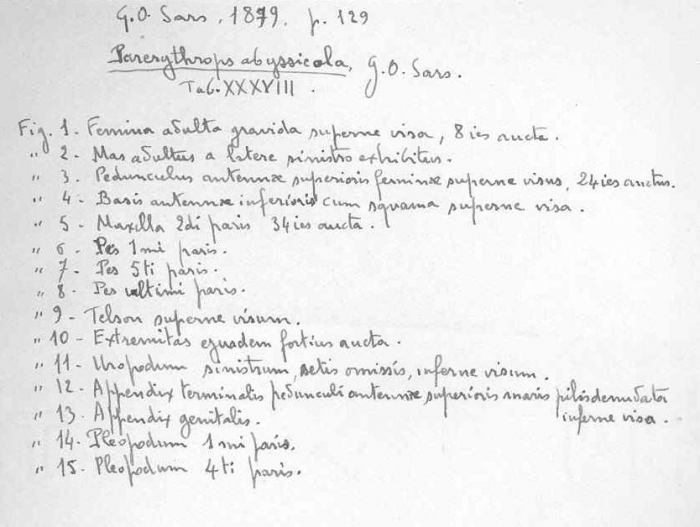 G.O. Sars, 1879. p. 129
Parerythrops abyssicola, G.O. Sars.
Tab. XXXVIII.
Fig. 1. Femina adulta gravida superne visa, 8 ies aucta.
" 2. Mas adultus a latere sinistro exhibitus.
" 3. Pedunculus antennæ superioris feminæ superne visus, 24ies auctus.
" 4. Basis antennæ inferioris cum squama superne visa.
" 5. Maxilla 2di paris 34ies aucta.
" 6. Pes 1mi paris.
" 7. Pes 5ti paris.
" 8. Pes ultimi paris.
" 9. Telson superne visum.
" 10. Extremitas ejusdem fortius aucta.
" 11. Uropodum sinistrum, setis omissis, inferne visum.
" 12. Appendix terminalis pedunculi antennæ superioris maris pilis denudata
inferne visa.
" 13. Appendix genitalis.
" 14. Pleopodum 1mi paris.
" 15. Pleopodum 4ti paris.